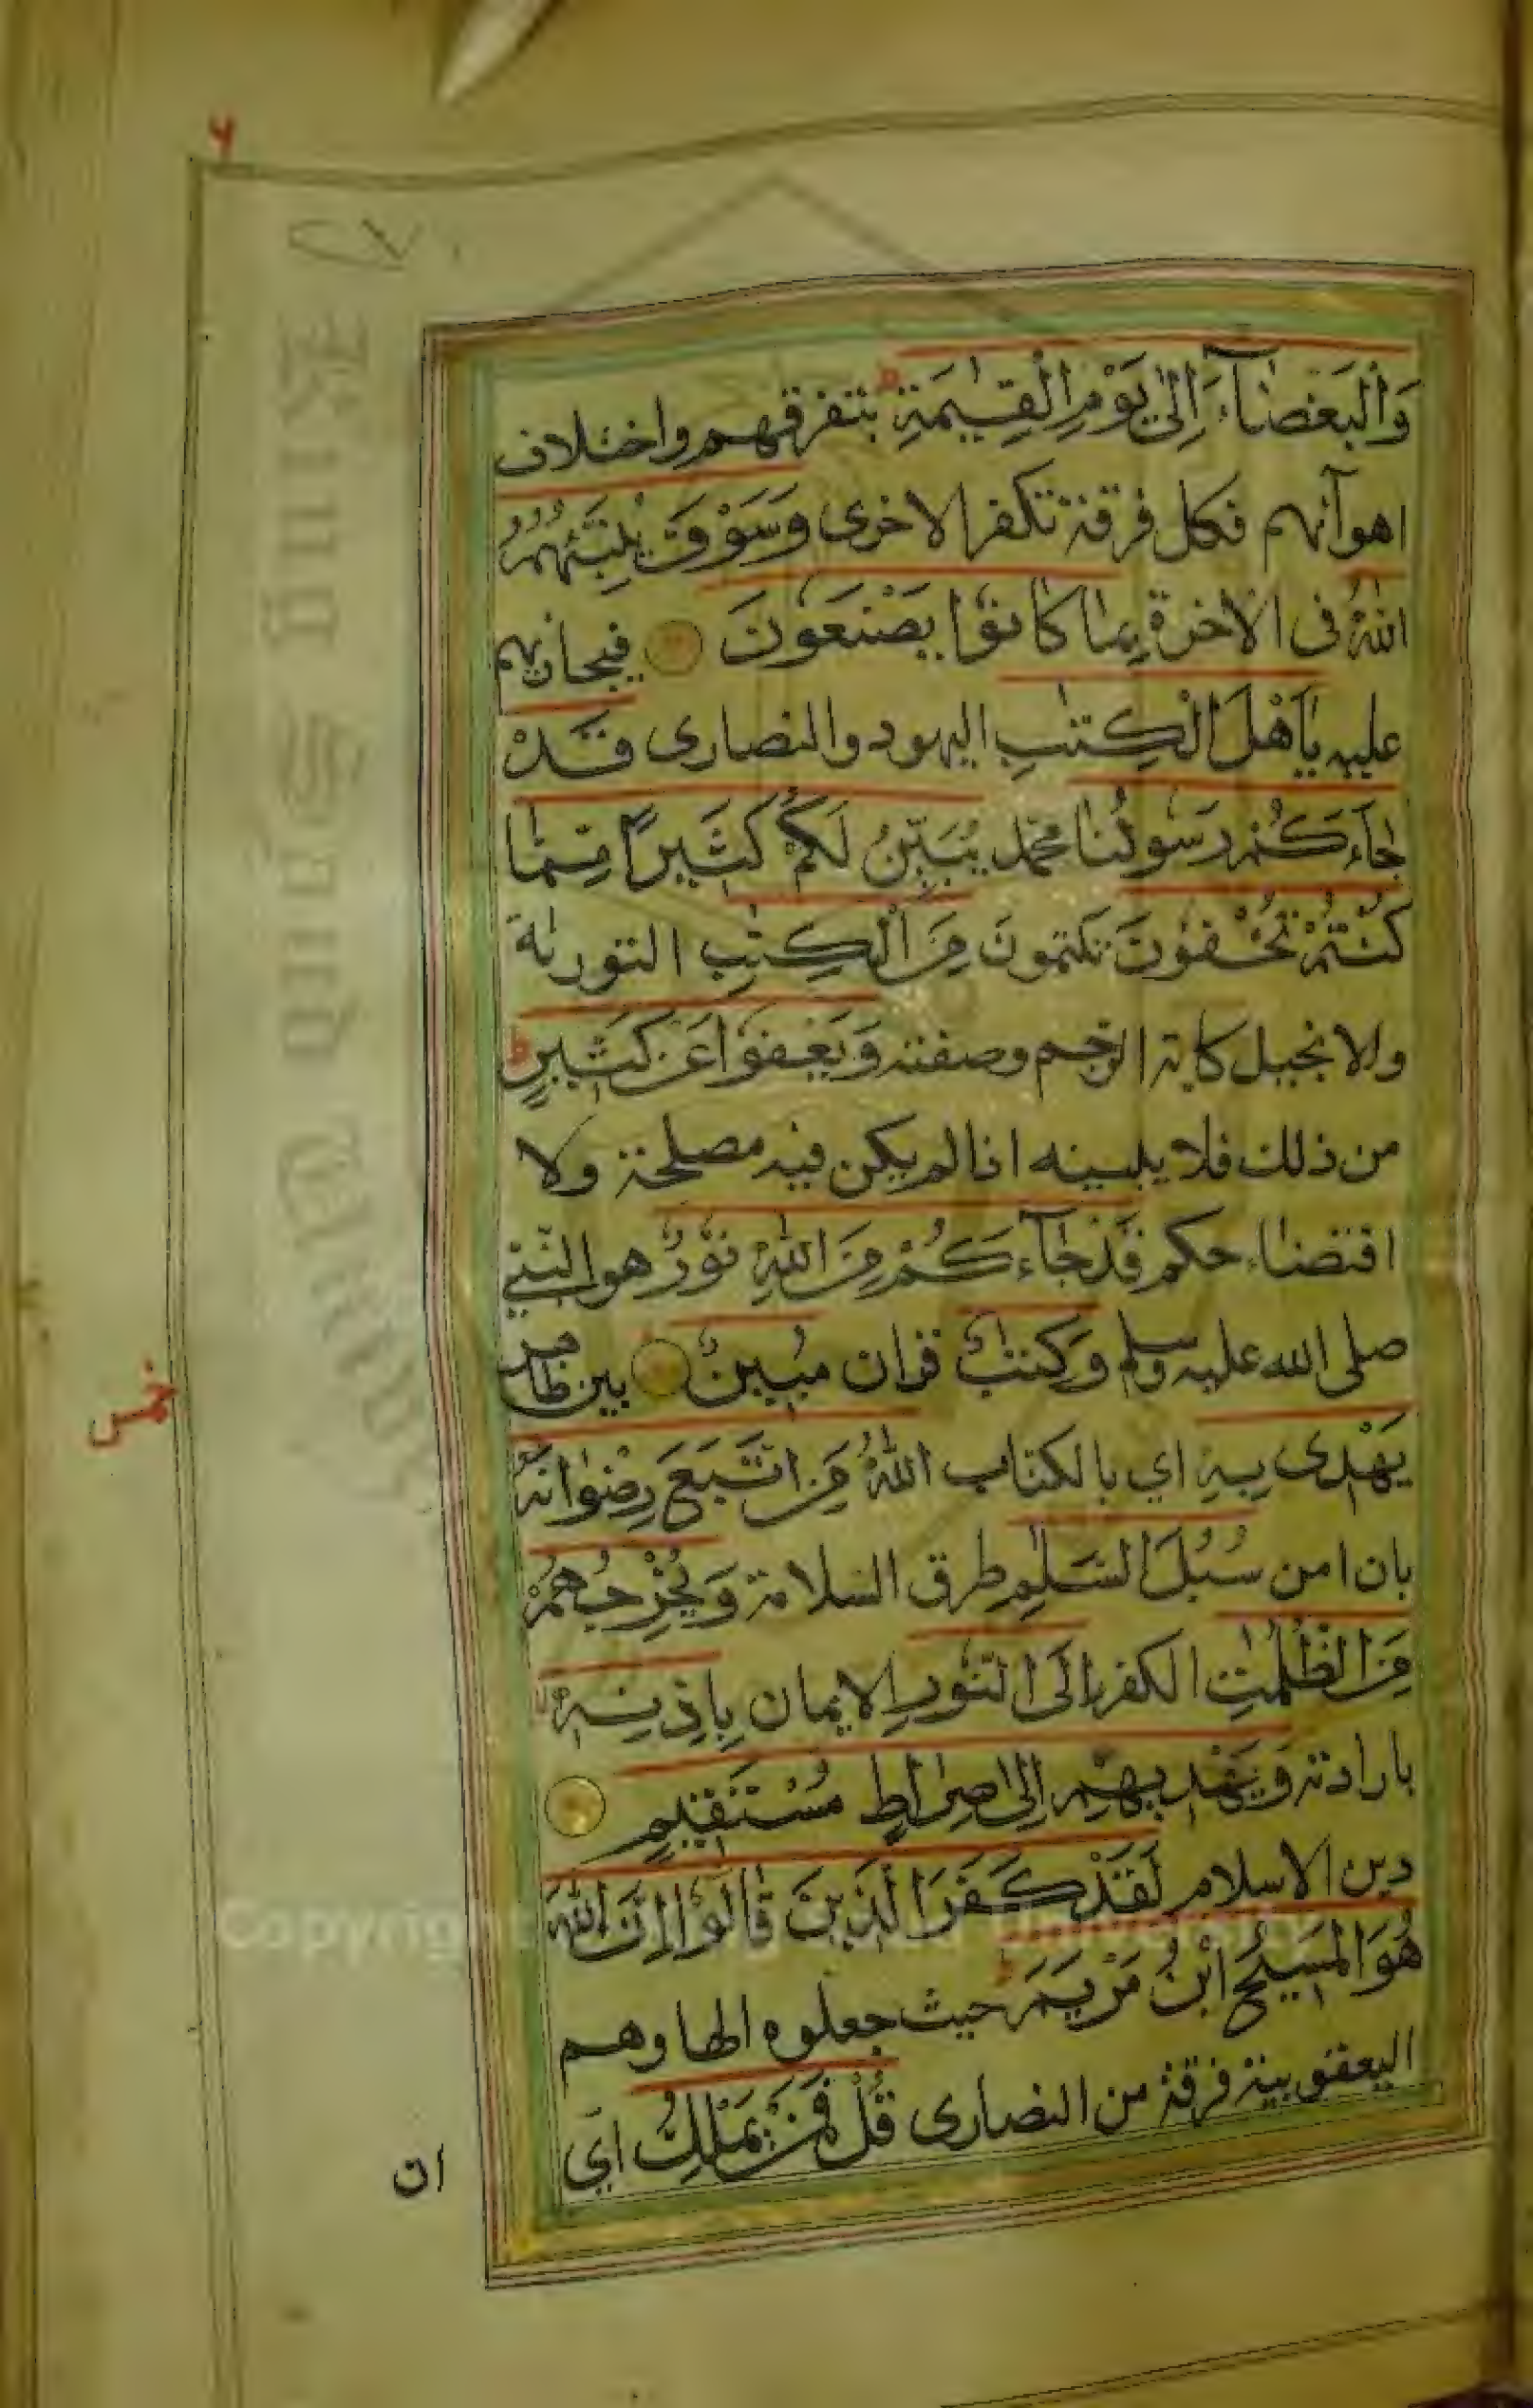 ۶
وَالْبَغْضَآءَ اِلٰى يَوْمِ الْقِيٰمَةِ ط بتفرقهم واختلاف
اهوآئهم فكل فرقة تكفر الاخرى وَسَوْفَ يُنَبِّئُهُمُ
اللّٰهُ فى الاخرة بِمَا كَانُوْا يَصْنَعُوْنَ فيجازيهم
عليه يٰاَهْلَ الْكِتٰبِ اليهود والنصارى قَدْ
جَآءَكُمْ رَسُوْلُنَا محمد يُبَيِّنُ لَكُمْ كَثِيْرًا مِّمَّا
كُنْتُمْ تُخْفُوْنَ تكتمون مِنَ الْكِتٰبِ التورىة
والانجيل كاية الرجم وصفته وَيَعْفُوْا عَنْ كَثِيْرٍ ط
من ذلك فلا يبينه اذا لم يكن فيه مصلحة ولا
اقتضاء حكم قَدْ جَآءَكُمْ مِنَ اللّٰهِ نُوْرٌ هو النبي
صلى الله عليه وسلم وَكِتٰبٌ قران مُبِيْنٌ بين ظاهر
يَهْدِى بِهِ اي بالكتاب اللّٰهُ مَنِ اتَّبَعَ رِضْوَانَهُ
بان امن سُبُلَ السَّلٰمِ طرق السلامة وَيُخْرِجُهُمْ
مِنَ الظُّلُمٰتِ الكفر اِلَى النُّوْرِ الايمان بِاِذْنِهِ
بارادته وَيَهْدِيْهِمْ اِلٰى صِرَاطٍ مُسْتَقِيْمٍ
دين الاسلام لَقَدْ كَفَرَ الَّذِيْنَ قَالُوْا اِنَّ اللّٰهَ
هُوَ الْمَسِيْحُ ابْنُ مَرْيَمَ ط حيث جعلوه الها وهم
اليعقوبية فرقة من النصارى قُلْ فَمَنْ يَمْلِكُ اي
ان
خمس